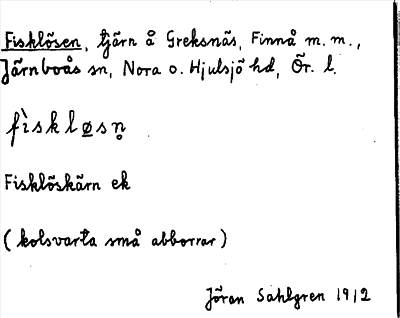 Fisklösen, tjärn å Greksnäs, Finnå m. m.,
Järnboås sn, Nora o. Hjulsjö hd, Ör. l.
fìskløsn̥
Fisklöskärn ek
(kolsvarta små abborrar)
Jöran Sahlgren 1912